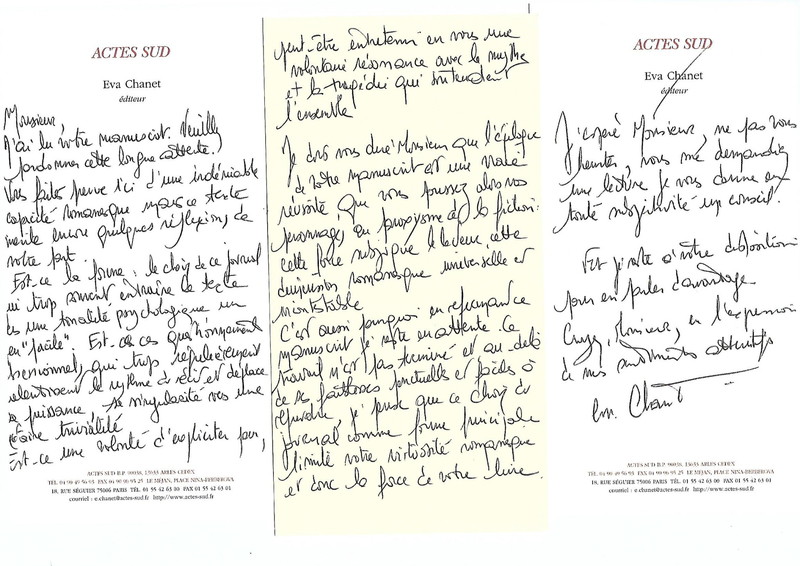 ACTES SUD
Eva Chanet
éditeur
Monsieur,
J'ai lu votre manuscrit. Veuillez
pardonner cette longue attente.
Vous faites preuve ici d'une indéniable
capacité romanesque mais ce texte
mérite encore quelques réflexions de
votre part.
Est-ce la forme : le choix de ce journal
qui trop souvent entraîne ce texte
vers une tonalité psychologique un
peu "facile". Est-ce ces questionnements
qui trop régulièrement
ralentissent le rythme du récit et déplace
sa puissance, sa singularité vers une
trivialité
Est-ce une volonté d'expliciter pour,
ACTES SUD B.P. 90038, 13633 ARLES CEDEX
TÉL 04 90 49 56 93 FAX 04 90 96 95 25 LE MÉJAN, PLACE NINA-BERBEROVA
18, RUE SÉGUIER 75006 PARIS TÉL. 01 55 42 63 00 FAX 01 55 42 63 01
courriel : e.chanet@actes-sud.fr http://www.actes-sud.fr
peut-être entretenir en vous une
volontaire résonnance avec le mythe
et la tragédie qui sous tendent
l'ensemble
Je dois vous dire Monsieur que l'épilogue
de votre manuscrit est une vraie
réussite que vous poussez alors vos
personnages au paroxysme de la fiction :
cette force subjugue le lecteur, cette
dimension romanesque universelle et
incontestable.
C'est aussi pourquoi en refusant ce
manuscrit je reste en attente. Ce
travail n'est pas terminé et au-delà
de ses faiblesses ponctuelles et faciles à
reprendre, je pense que ce choix du
journal comme forme principale
limite votre virtuosité romanesque
et donc la force de votre livre.
ACTES SUD
Eva Chanet
éditeur
J'espère Monsieur, ne pas vous
heurter, vous me demandiez
une lecture je vous donne en
toute subjectivité un conseil.
Et je reste à votre disposition
pour en parler davantage
Croyez, Monsieur, en l'expression
de mes sentiments attentifs
Eva Chanet
ACTES SUD B.P. 90038, 13633 ARLES CEDEX
TÉL 04 90 49 56 93 FAX 04 90 96 95 25 LE MÉJAN, PLACE NINA-BERBEROVA
18, RUE SÉGUIER 75006 PARIS TÉL. 01 55 42 63 00 FAX 01 55 42 63 01
courriel : e.chanet@actes-sud.fr http://www.actes-sud.fr